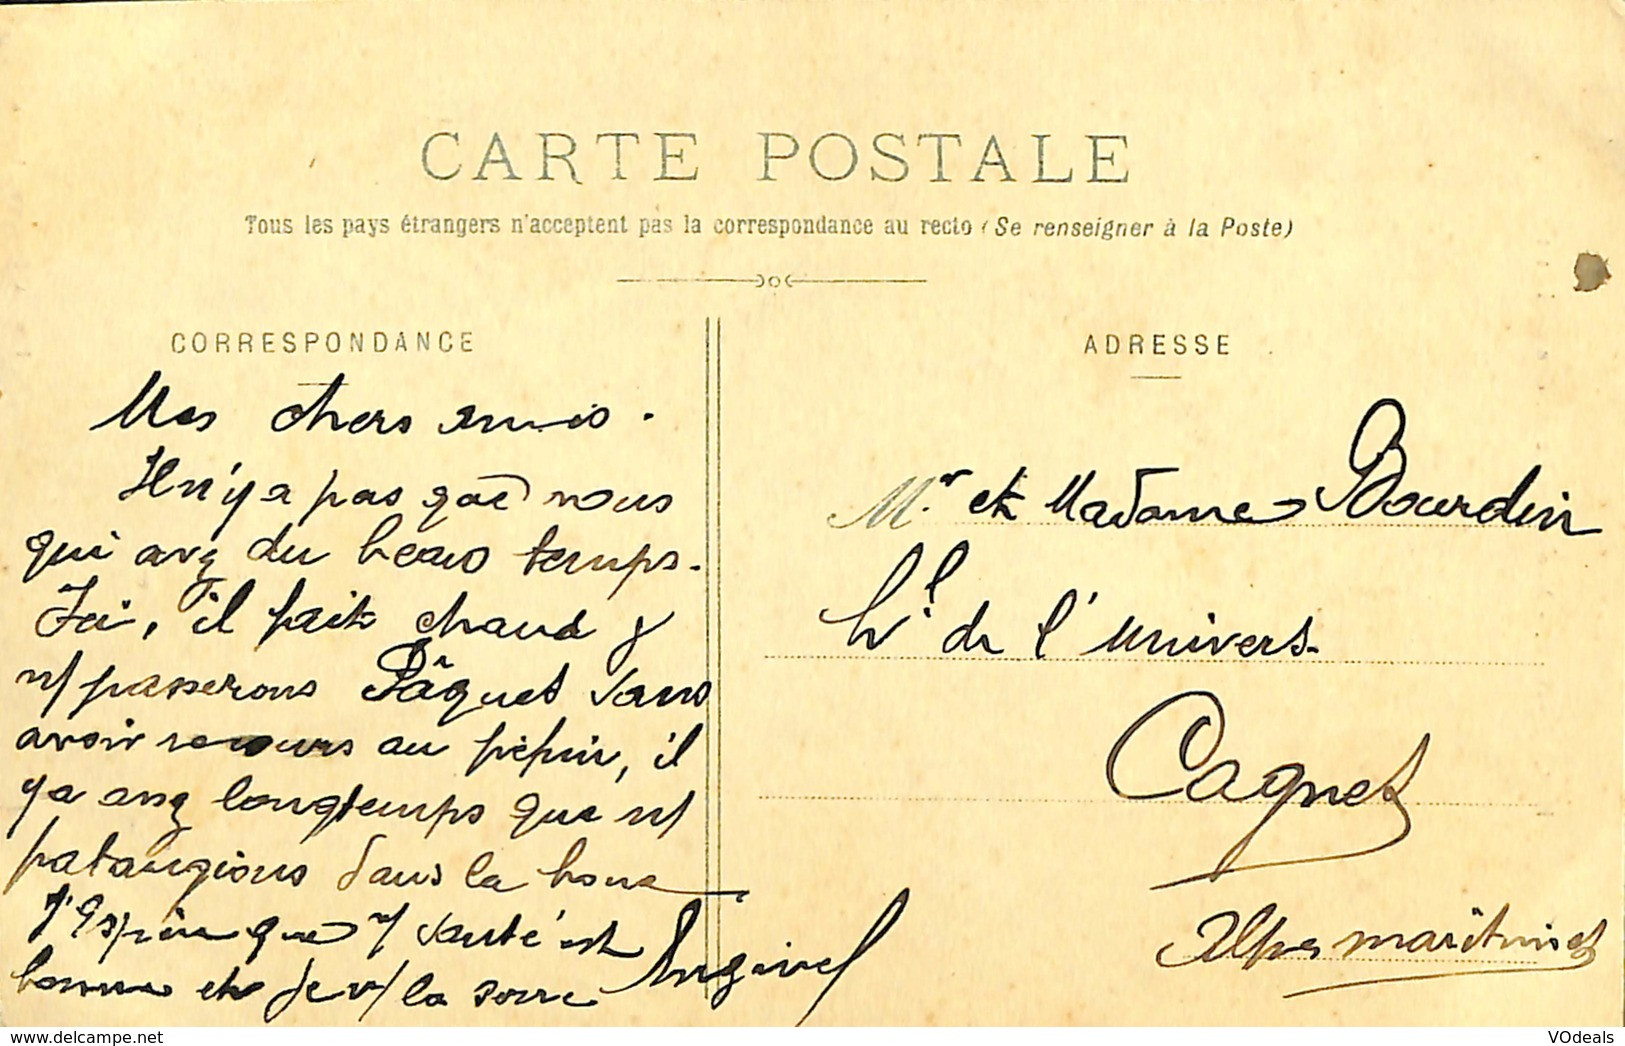 CARTE POSTALE
Tous les pays étrangers n'acceptent pas la correspondance au recto (Se renseigner à la Poste)
CORRESPONDANCE
Mes chers amis.
Il n'y a pas que vous
qui avez du beau temps.
Ici, il fait chaud &
n/ passerons Pâques sans
avoir recours au pépin, il
y a assez longtemps que n/
pataugions dans la boue
J'espère que v/ santé est
bonne et je v/ la serre
Angivel
ADRESSE
Mr. et Madame Bourdin
Hl. de l'Univers.
Cagnes
Alpes maritimes
VOdeals
www.delcampe.net